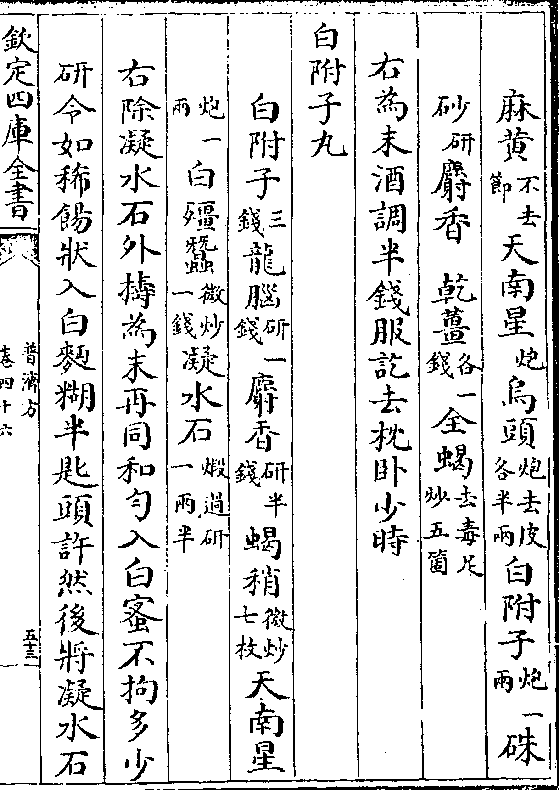 麻黄不去節天南星炮烏頭炮去皮各半兩白附子炮一兩硃
砂研麝香乾薑各一錢全蝎去毒炒五箇
右為末酒調半錢服訖去枕卧少時
白附子丸
白附子三錢龍腦研一錢麝香研半錢蝎稍微炒七枚天南星
炮一兩白殭蠶微炒一錢凝水石煅過研一兩半
右除凝水石外擣為末再同和勻入白蜜不拘多少
研令如稀餳狀入白麪糊半匙頭許然後將凝水石
欽定四庫全書
普濟方
卷四十六
五十三